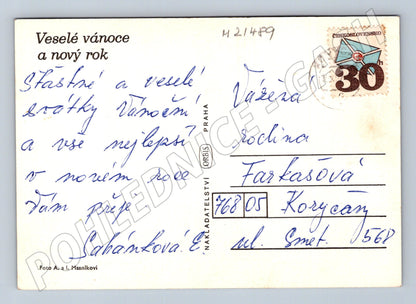 Veselé vánoce
a nový rok
H21489
ČESKOSLOVENSKO
30h
Stastné a veselé
svátky Vánoční
a vse nejlepší
v novém roce
Vám přeje
Sabánková E.
Foto A. a I. Mazníkovi
NAKLADATELSTVÍ ORBIS PRAHA
Vážená
rodina
Farkašová
768 05 Koryčany
ul. Smet. 568
POHLEDNICE - GALU